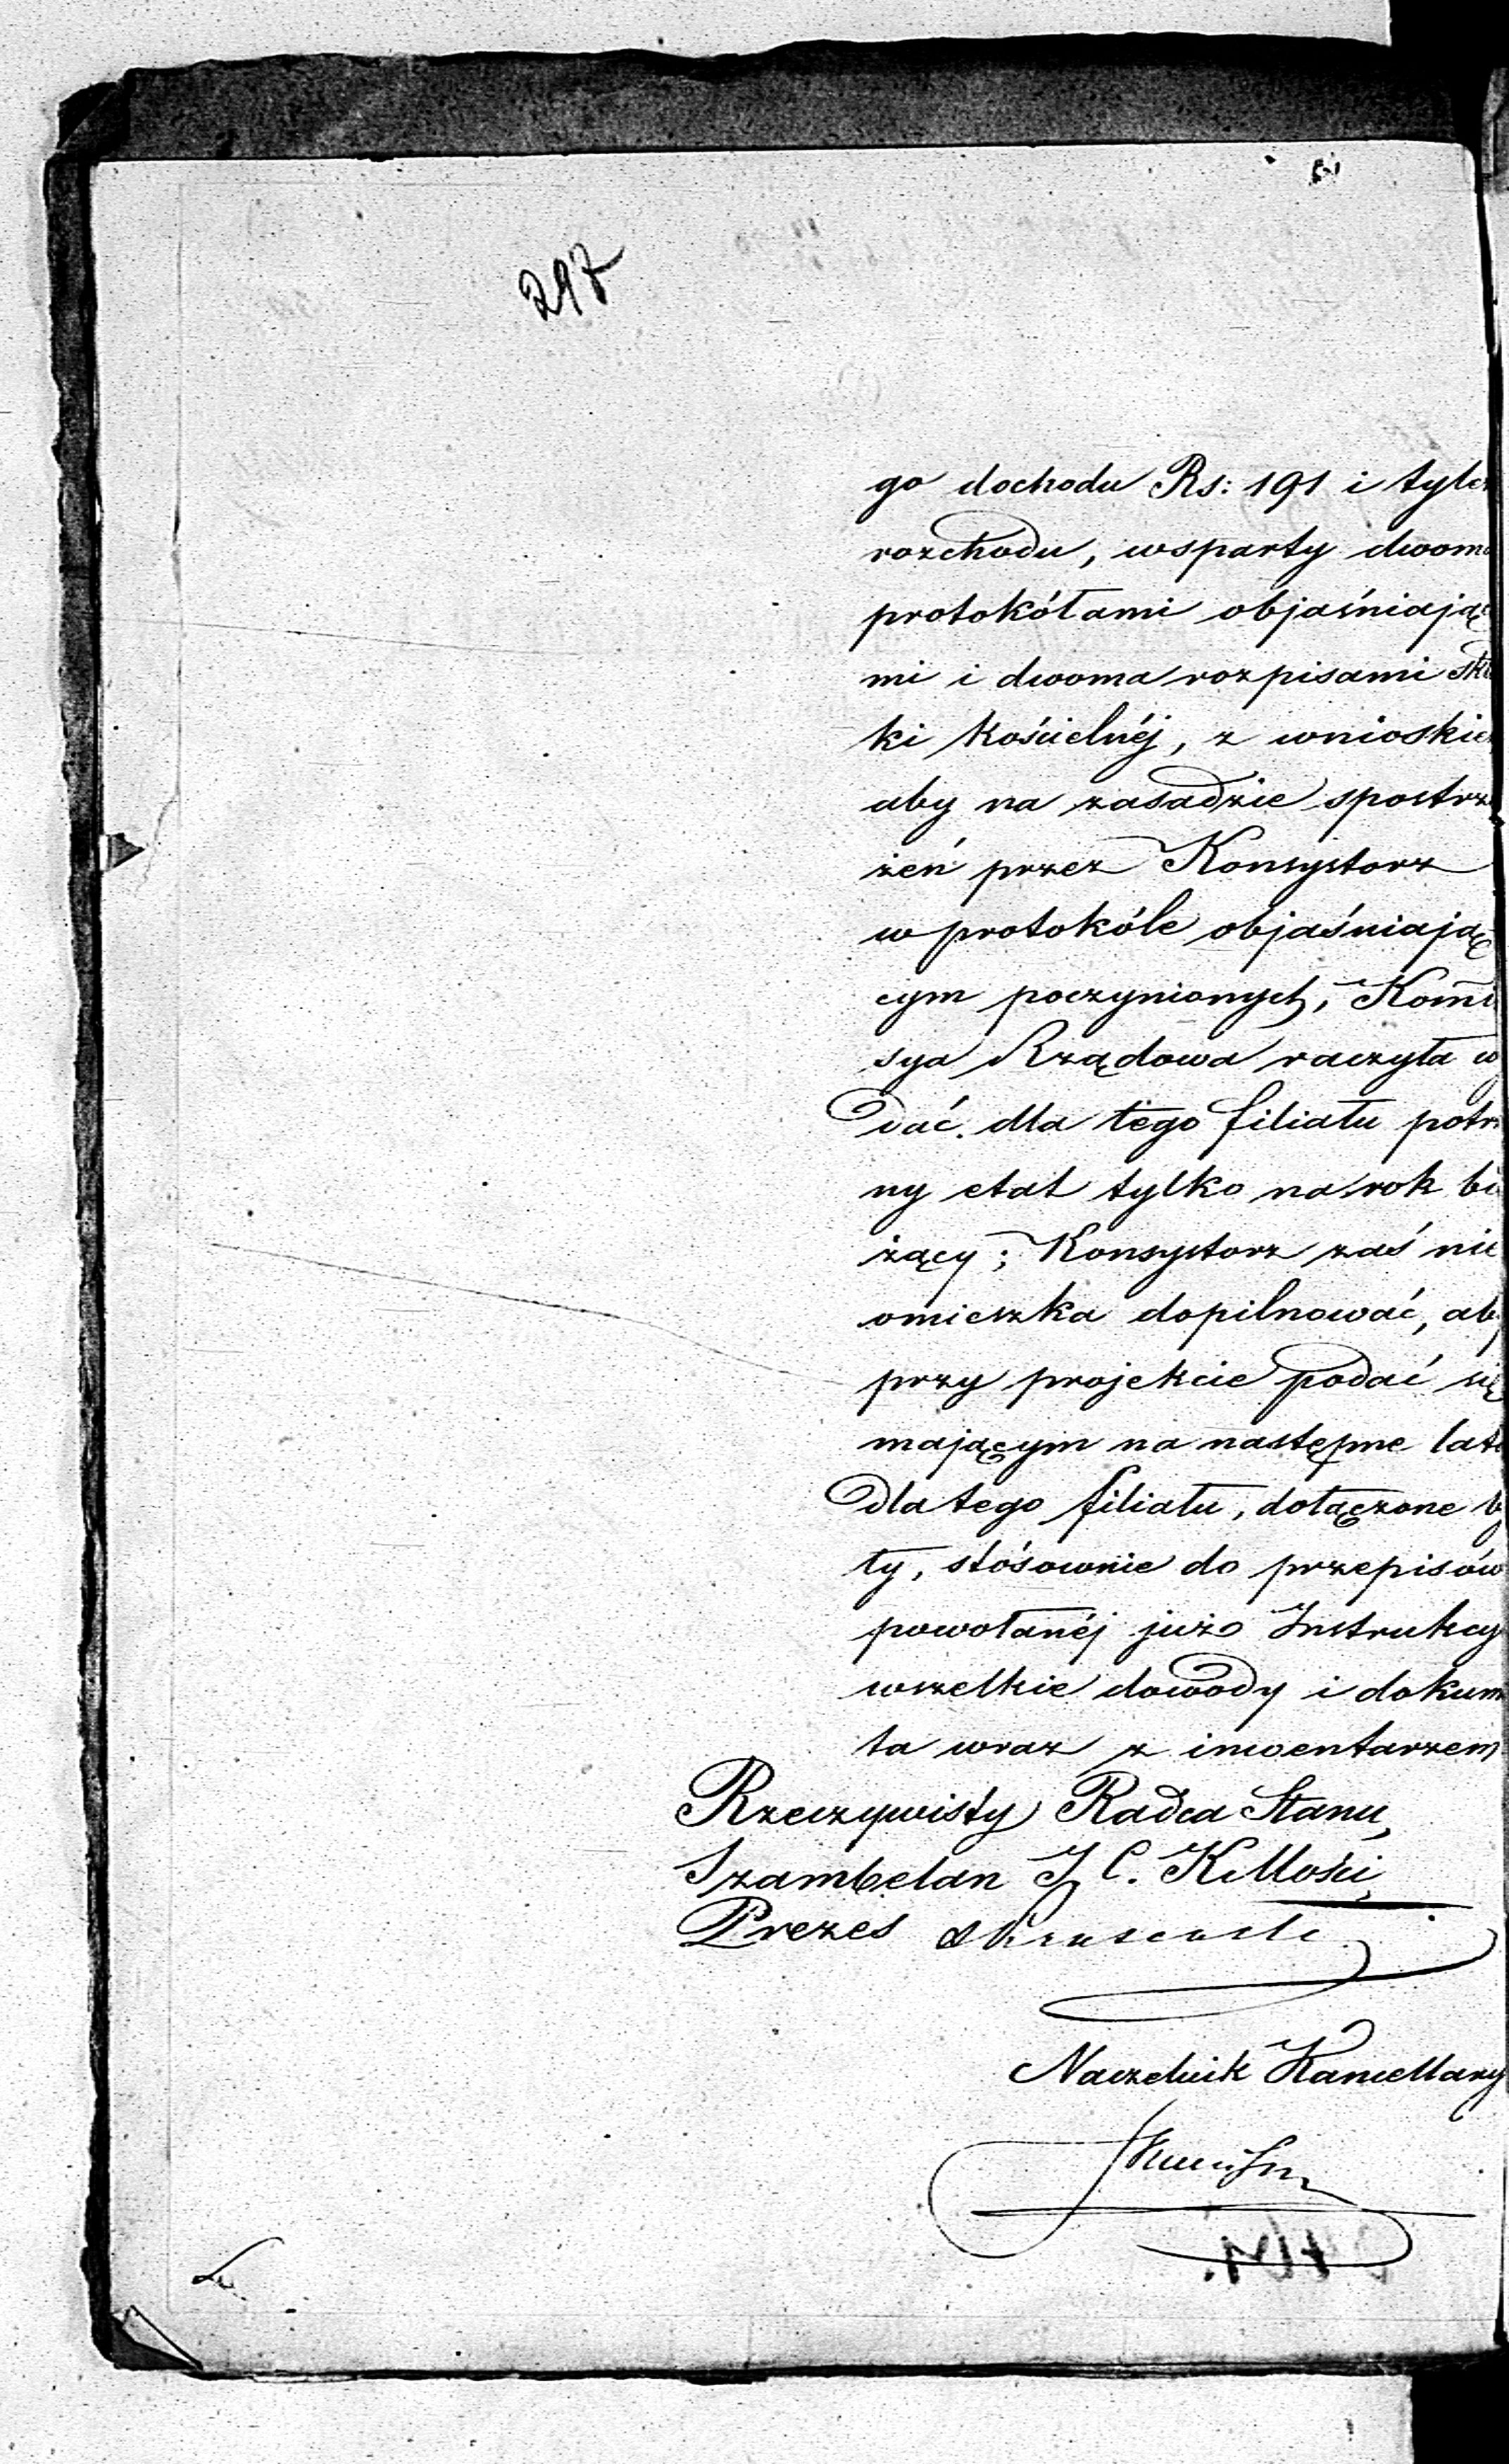 297
go dochodu Rs: 191 i tyle
rozchodu, wsparty dwoma
protokółami objaśniają
mi i dwoma rozpisami skł
ki kościelnéj, z wnioskie
aby na zasadzie spostrze
żeń przez Konsystorz
w protokóle objaśniają
cym poczynionych, Komi
sya Rządowa raczyła w
dać dla tego filiału potr
ny etat tylko na rok bi
żący; Konsystorz zaś nie
omieszka dopilnować, aby
przy projekcie podać się
mającym na następne lata
dla tego filiału, dołączone by
ły, stósownie do przepisów
powołanéj już Instrukcy
wszelkie dowody i dokum
ta wraz z inwentarzem
Rzeczywisty Radca Stanu,
Szambelan J. C. K. Mości,
Prezes
Naczelnik Kancellary